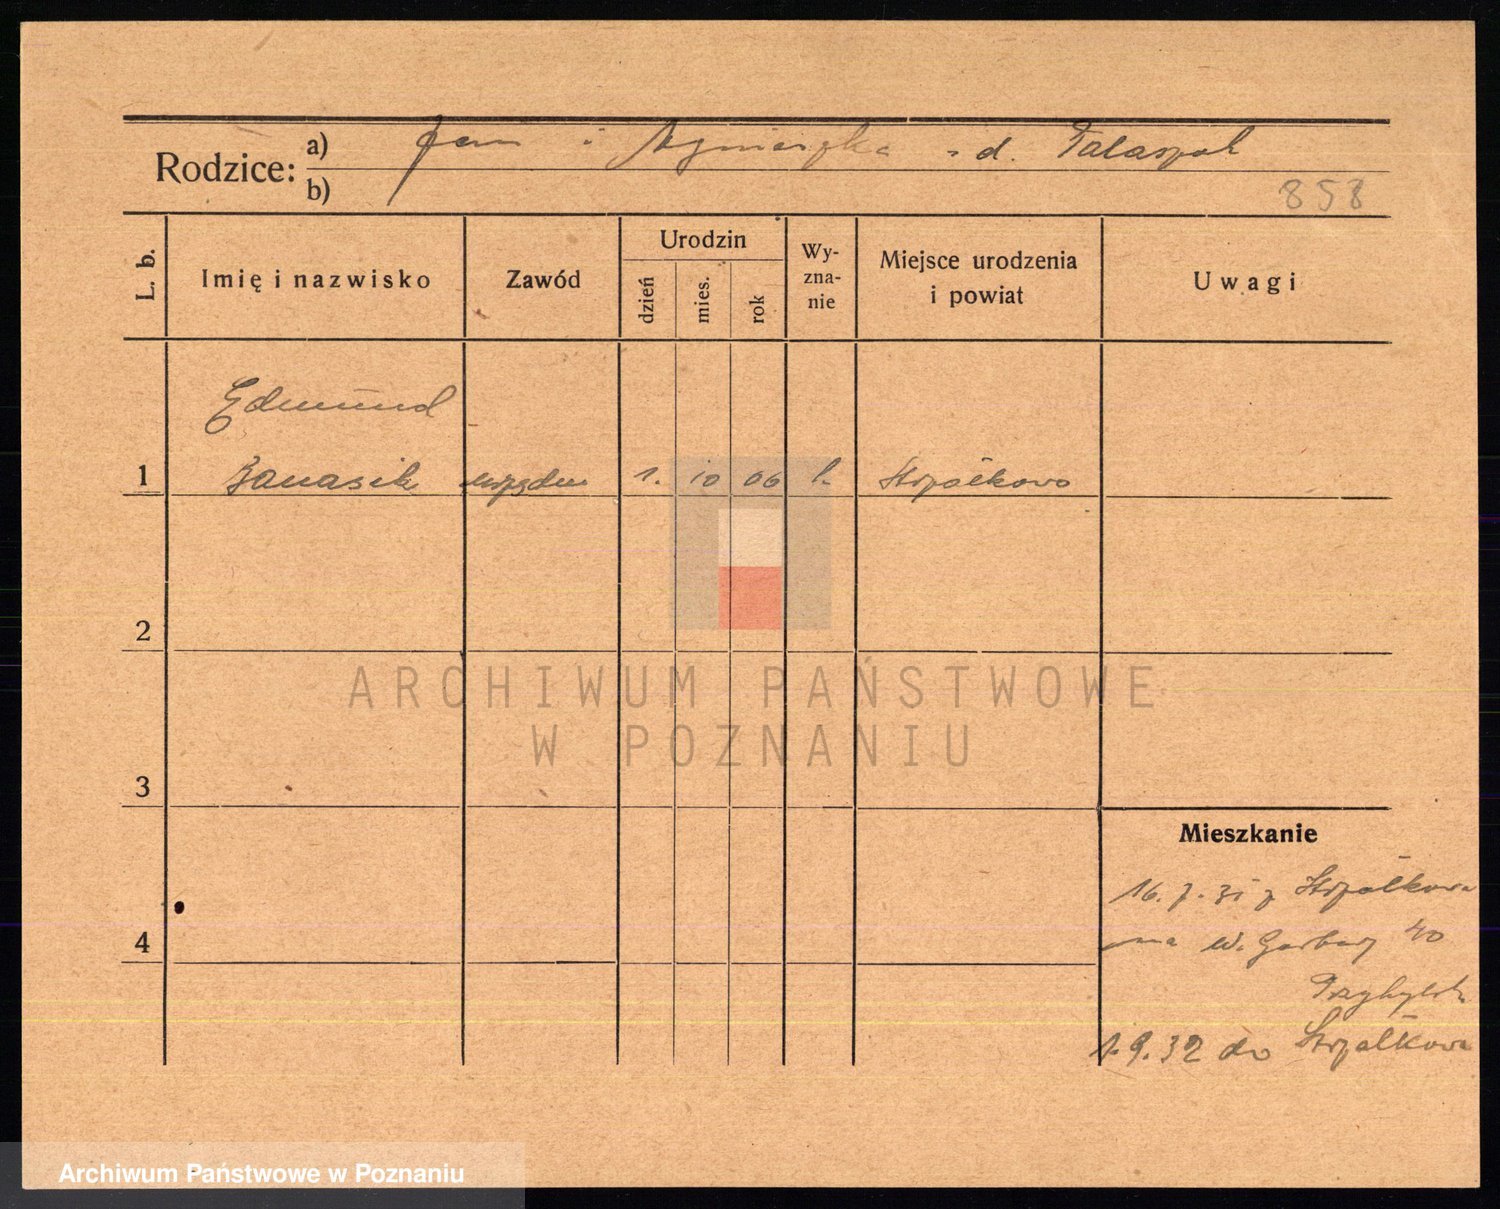 Rodzice: a) Jan i Agnieszka z d. Talaszak
b)
858
L. b.
Imię i nazwisko
Zawód
Urodzin
dzień
mies.
rok
Wy-
zna-
nie
Miejsce urodzenia
i powiat
Uwagi
Edmund
1 Banasik urzędn 1. 10 06 k. Strzałkowo
2
3
4
Mieszkanie
16. 7. 31 z Strzałkowa
na W. Garbary 40
1. 9. 32 do Strzałkowa
ARCHIWUM PAŃSTWOWE
W POZNANIU
Archiwum Państwowe w Poznaniu